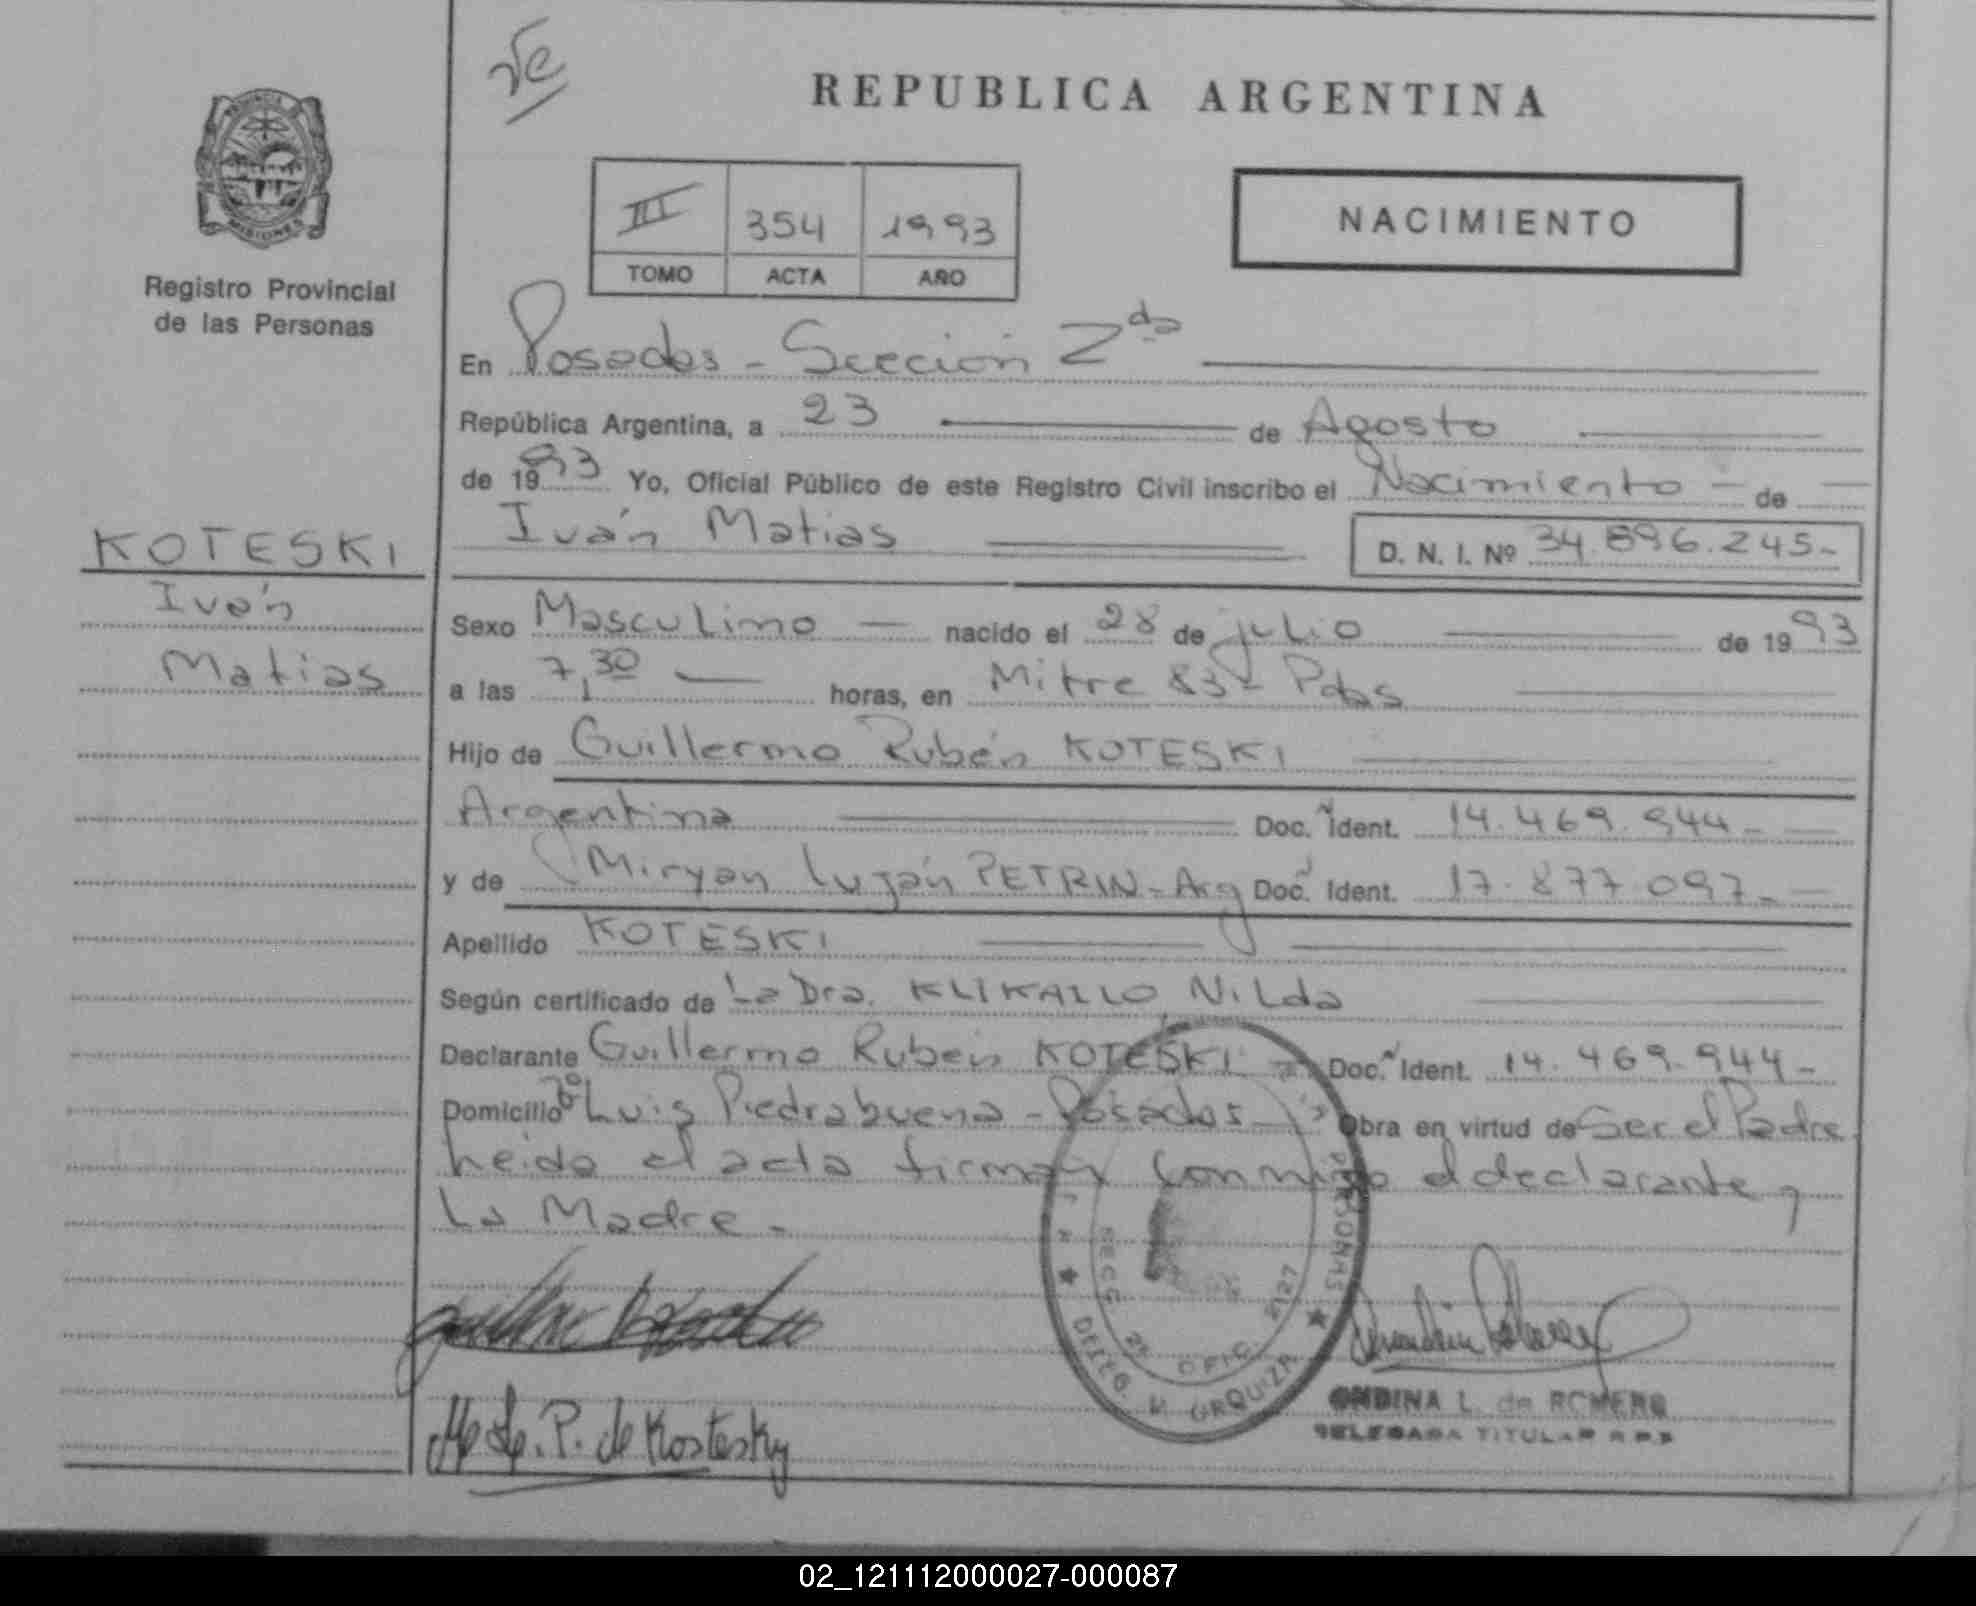 REPUBLICA ARGENTINA
PROVINCIA
MISIONES
Registro Provincial
de las Personas
III 354 1993
TOMO ACTA AÑO
NACIMIENTO
En Posadas - Sección 2da
República Argentina, a 23 de Agosto
de 1993 Yo, Oficial Público de este Registro Civil inscribo el Nacimiento - de
Iván Matias D. N. I. Nº 34.896.245-
KOTESKI
Iván
Matias
Sexo Masculino nacido el 28 de julio de 1993
a las 7,30 horas, en Mitre 83 - Pdas
Hijo de Guillermo Rubén KOTESKI
Argentina Doc. Ident. 14.469.944-
y de Miryan Luján PETRIN - Arg Doc. Ident. 17.877.097-
Apellido KOTESKI
Según certificado de La Dra. Nilda
Declarante Guillermo Rubén KOTESKI Doc. Ident. 14.469.944-
Domicilio Luis Piedrabuena - Posadas - Obra en virtud de Ser el Padre
Leida el acta firman conmigo el declarante y
La Madre.-
PERSONAS
SECC 2ª OFIC. 2127
DPTO. U URQUIZA
P. de Kostesky
ONDINA L. de ROMERO
DELEGADA TITULAR R.P.P.
02_121112000027-000087